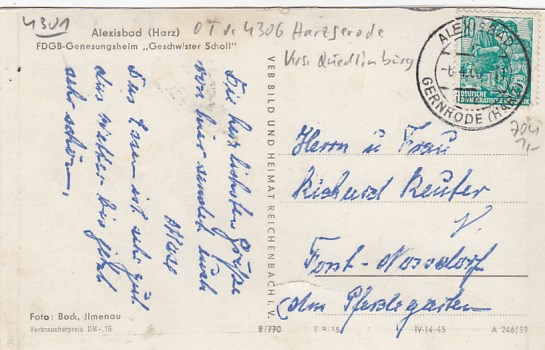 4301
Alexisbad (Harz)
FDGB-Genesungsheim „Geschwister Scholl"
OT v. 4306 Harzgerode
Krs. Quedlinburg
Die herzlichsten Grüße
von hier sendet Euch
Das Essen ist sehr gut
das Wetter bis jetzt
sehr schön.
Foto: Bock, Ilmenau
Verbraucherpreis DM -,15
VEB BILD UND HEIMAT REICHENBACH I. V.
ALEXISBAD
GERNRODE (HARZ)
10
DEUTSCHE
DEMOKRATISCHE REPUBLIK
Herrn u. Frau
Richard Reuter
Forst-Nossdorf
Am Pferdegarten
B/770
IV-14-45
A 246/59